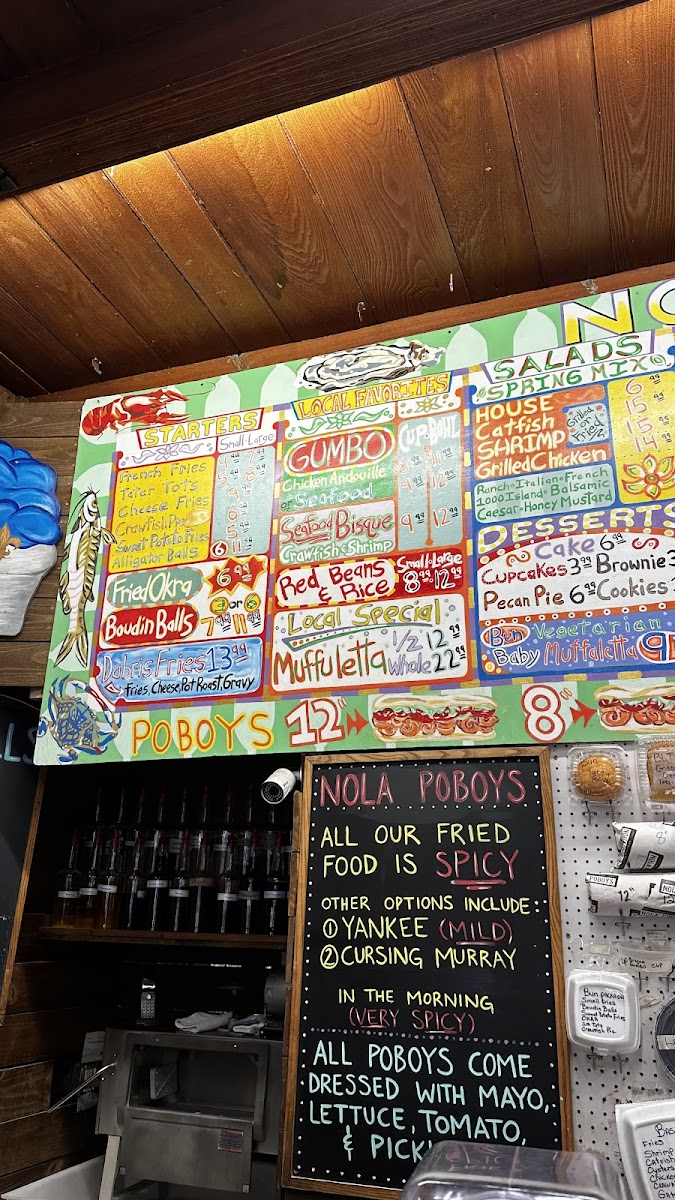 NO
STARTERS
Small-Large
French Fries
Tater Tots
Cheese Fries
Crawfish Pie
Sweet Potato Fries
Alligator Balls
Fried Okra 6.99
Boudin Balls
3 or 6
7.99 11.99
Dabris Fries 13.99
Fries, Cheese, Pot Roast, Gravy
LOCAL FAVORITES
GUMBO
CUP & BOWL
Chicken Andouille
or Seafood
Seafood Bisque
Crawfish & Shrimp
9 12
Red Beans
& Rice
Small-Large
8.99 12.99
Local Special
Muffuletta
1/2 12.99
Whole 22.99
SALADS
SPRING MIX
HOUSE
Catfish
SHRIMP
Grilled Chicken
Grilled
or
Fried
Ranch • Italian • French
1000 Island • Balsamic
Caesar • Honey Mustard
DESSERTS
Cake 6.99
Cupcakes 3.99 Brownie
Pecan Pie 6.99 Cookies
Bun Vegetarian
Baby Muffaletta
POBOYS 12" 8"
NOLA POBOYS
ALL OUR FRIED
FOOD IS SPICY
OTHER OPTIONS INCLUDE:
① YANKEE (MILD)
② CURSING MURRAY
IN THE MORNING
(VERY SPICY)
ALL POBOYS COME
DRESSED WITH MAYO,
LETTUCE, TOMATO,
& PICK
12"
NOLA
POBOYS
CUP
Small Fries
Boudin Balls
Sweet Potato Fries
OKRA
Fries
Shrimp
Catfish
Oysters